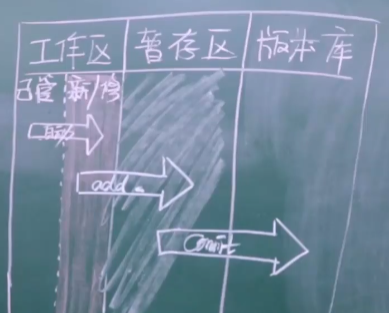 工作区 暂存区 版本库
已管 新/修
自动
add
Commit